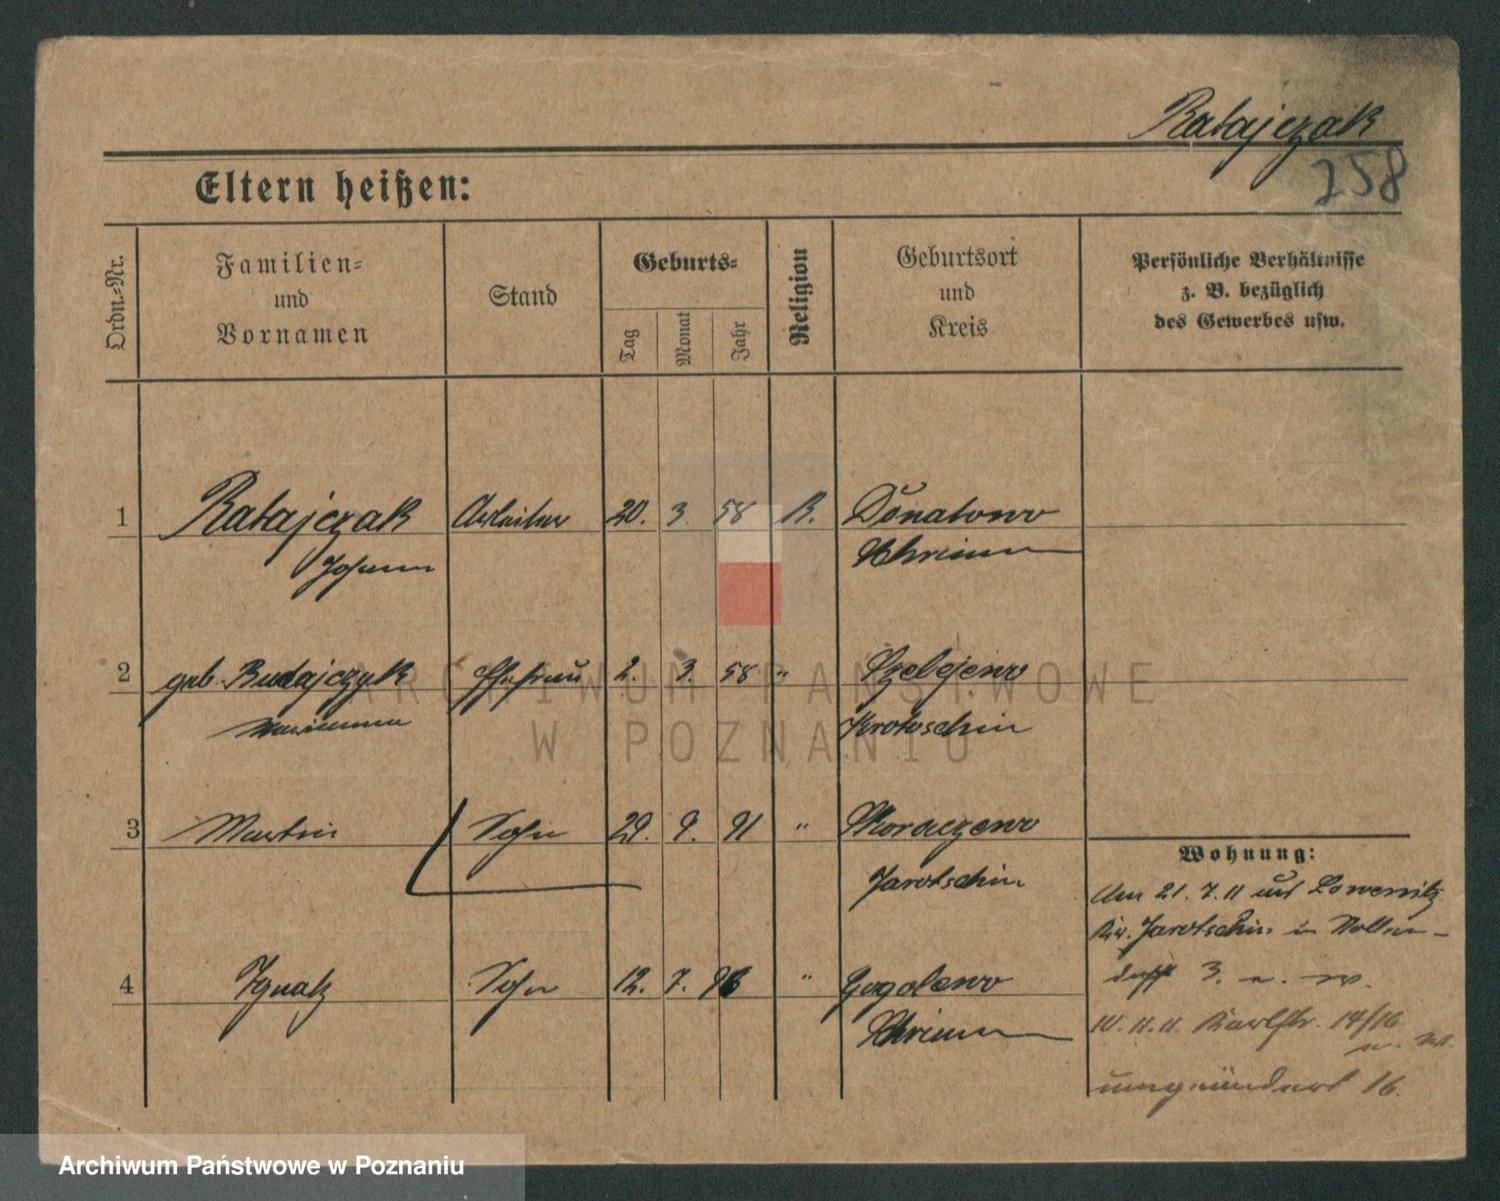 Ratajczak
258
Eltern heißen:
Ordn.-Nr.
Familien-
und
Vornamen
Stand
Geburts-
Tag
Monat
Jahr
Religion
Geburtsort
und
Kreis
Persönliche Verhältnisse
z. B. bezüglich
des Gewerbes usw.
1 Ratajczak Arbeiter 20. 3. 58 K. Donatowo
Johann Schrimm
2 geb. Budajczyk Ehefrau 2. 3. 58 "
Marianna Krotoschin
3 Martin Sohn 29. 9. 91 "
Jarotschin
4 Ignatz Sohn 12. 7. 96 " Gogolewo
Schrimm
Wohnung:
Am 21. 7. 11 aus
Kr. Jarotschin in Nollen-
dorff 3. u. w.
10. 11. 11. Karlstr. 14/16
u. w.
umgeändert 16.
ARCHIWUM PAŃSTWOWE
W POZNANIU
Archiwum Państwowe w Poznaniu